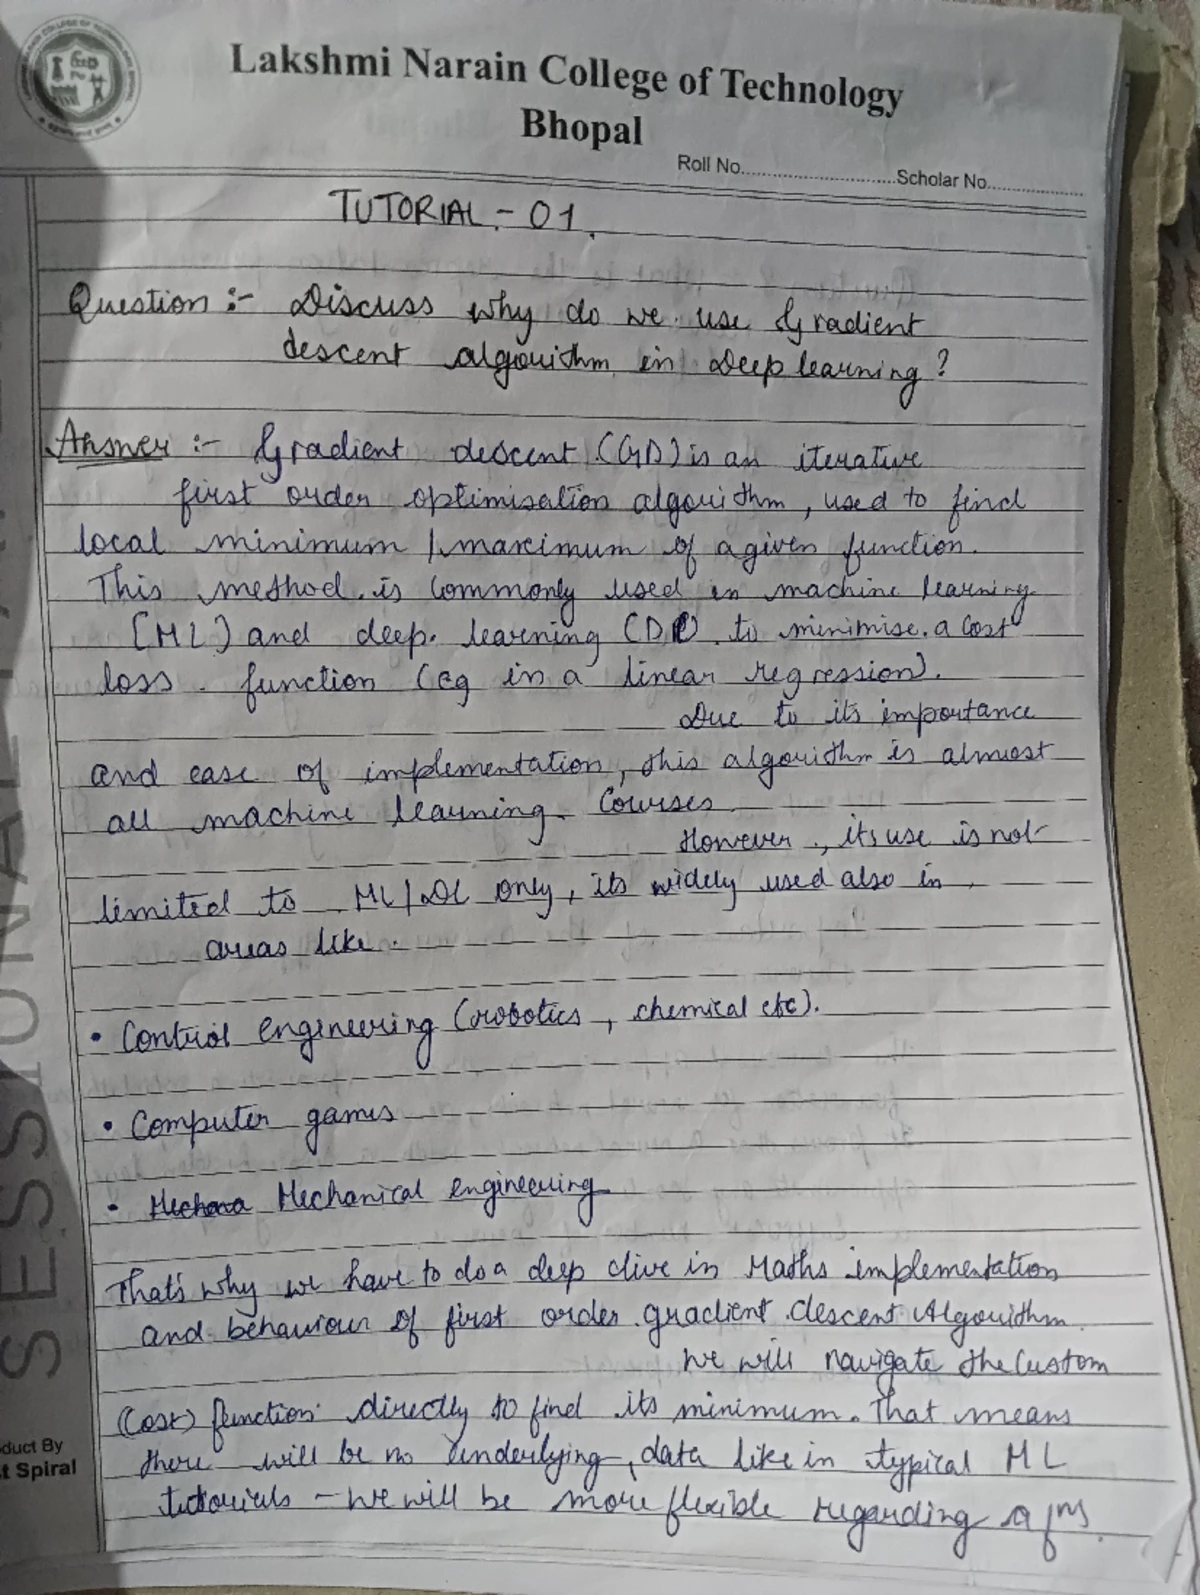 Lakshmi Narain College of Technology
Bhopal
Roll No.............................Scholar No.................
TUTORIAL - 01.
Question :- Discuss why do we use Gradient
descent algorithm in Deep learning?
Answer :- Gradient descent (GD) is an iterative
first order optimisation algorithm, used to find
local minimum / maximum of a given function.
This method is commonly used in machine learning
[ML] and deep learning (DL) to minimise a cost
loss function (eg in a linear regression).
Due to its importance
and ease of implementation, this algorithm is almost
all machine learning courses
However, its use is not
limited to ML/DL only, its widely used also in
areas like.
• Control engineering (robotics, chemical etc).
• Computer games
• Mechana Mechanical engineering
That's why we have to do a deep dive in Maths implementation
and behaviour of first order gradient descent Algorithm
We will navigate the custom
(cost) function directly to find its minimum. That means
there will be no underlying data like in typical ML
tutorials - we will be more flexible regarding a fns.
SESSIONAL
duct By
t Spiral